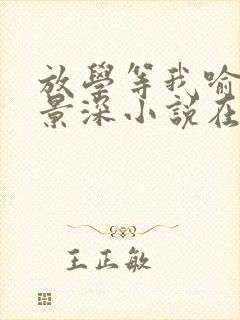 放學等我喻
景深小說在
王正敏